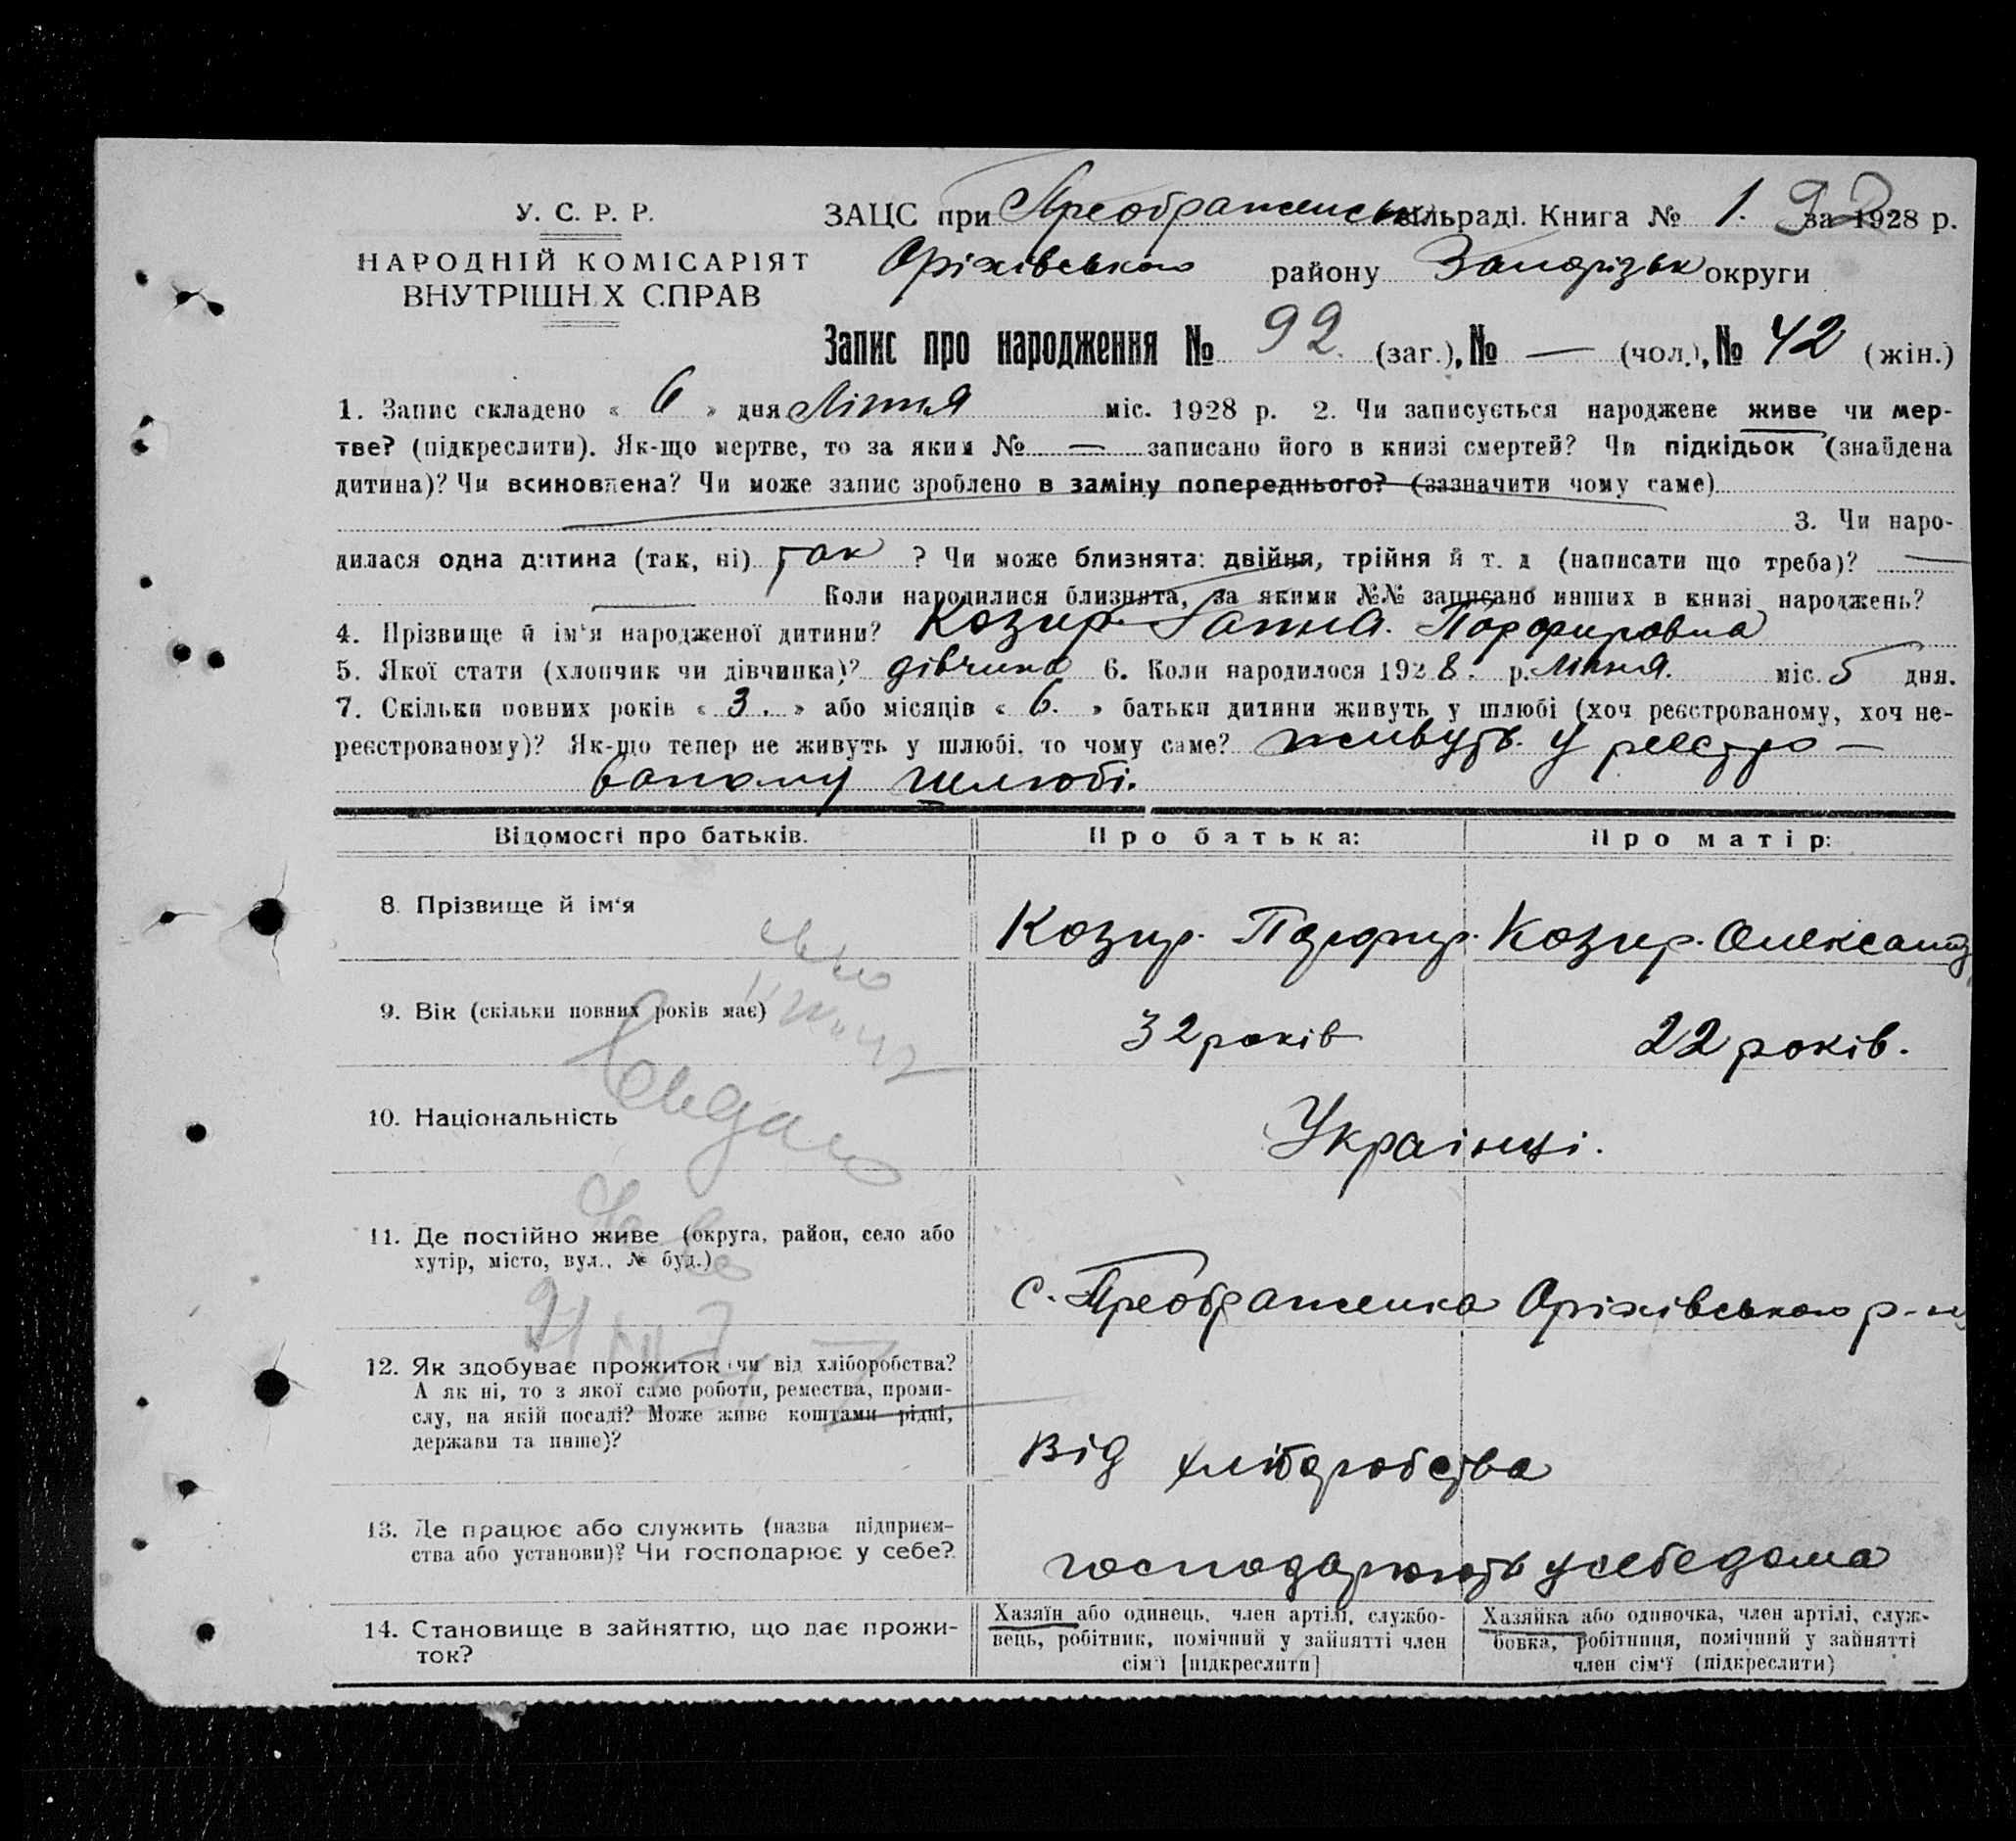 У. С. Р. Р.
НАРОДНІЙ КОМІСАРІЯТ
ВНУТРІШНІХ СПРАВ
ЗАЦС при Преображенськ сільраді. Книга № 1. за 1928 р.
92
Оріхівського району Запорізьк округи
Запис про народження № 92. (заг.), № — (чол.), № 42 (жін.)
1. Запис складено « 6 » дня Липня міс. 1928 р. 2. Чи записується народжене живе чи мер-
тве? (підкреслити). Як-що мертве, то за яким № — записано його в книзі смертей? Чи підкідьок (знайдена
дитина)? Чи всиновлена? Чи може запис зроблено в заміну попереднього? (зазначити чому саме)
3. Чи наро-
дилася одна дитина (так, ні) так ? Чи може близнята: двійня, трійня й т. д (написати що треба)? —
— Коли народилися близнята, за якими №№ записано инших в книзі народжень?
4. Прізвище й ім'я народженої дитини? Козир. Ганна. Порфировна
5. Якої стати (хлопчик чи дівчинка)? дівчина 6. Коли народилося 1928. р. липня. міс. 5 дня.
7. Скільки повних років « 3. » або місяців « 6. » батьки дитини живуть у шлюбі (хоч реєстрованому, хоч не-
реєстрованому)? Як-що тепер не живуть у шлюбі, то чому саме? живуть. у реєстро-
ваному шлюбі.
Відомості про батьків. Про батька: Про матір:
8. Прізвище й ім'я Козир. Порфир. Козир. Олександ
9. Вік (скільки повних років має) 32 років 22 років.
10. Національність Українці.
11. Де постійно живе (округа, район, село або
хутір, місто, вул., № буд.)
с. Преображенка Оріхівського р-ну
12. Як здобуває прожиток чи від хліборобства?
А як ні, то з якої саме роботи, ремества, проми-
слу, на якій посаді? Може живе коштами рідні,
держави та инше)?
Від хліборобства
13. Де працює або служить (назва підприєм-
ства або установи)? Чи господарює у себе?
господарюють у себе дома
14. Становище в зайняттю, що дає прожи-
ток?
Хазяїн або одинець, член артілі, службо-
вець, робітник, помічний у зайнятті член
сім'ї [підкреслити]
Хазяйка або одиночка, член артілі, служ-
бовка, робітниця, помічний у зайнятті
член сім'ї (підкреслити)